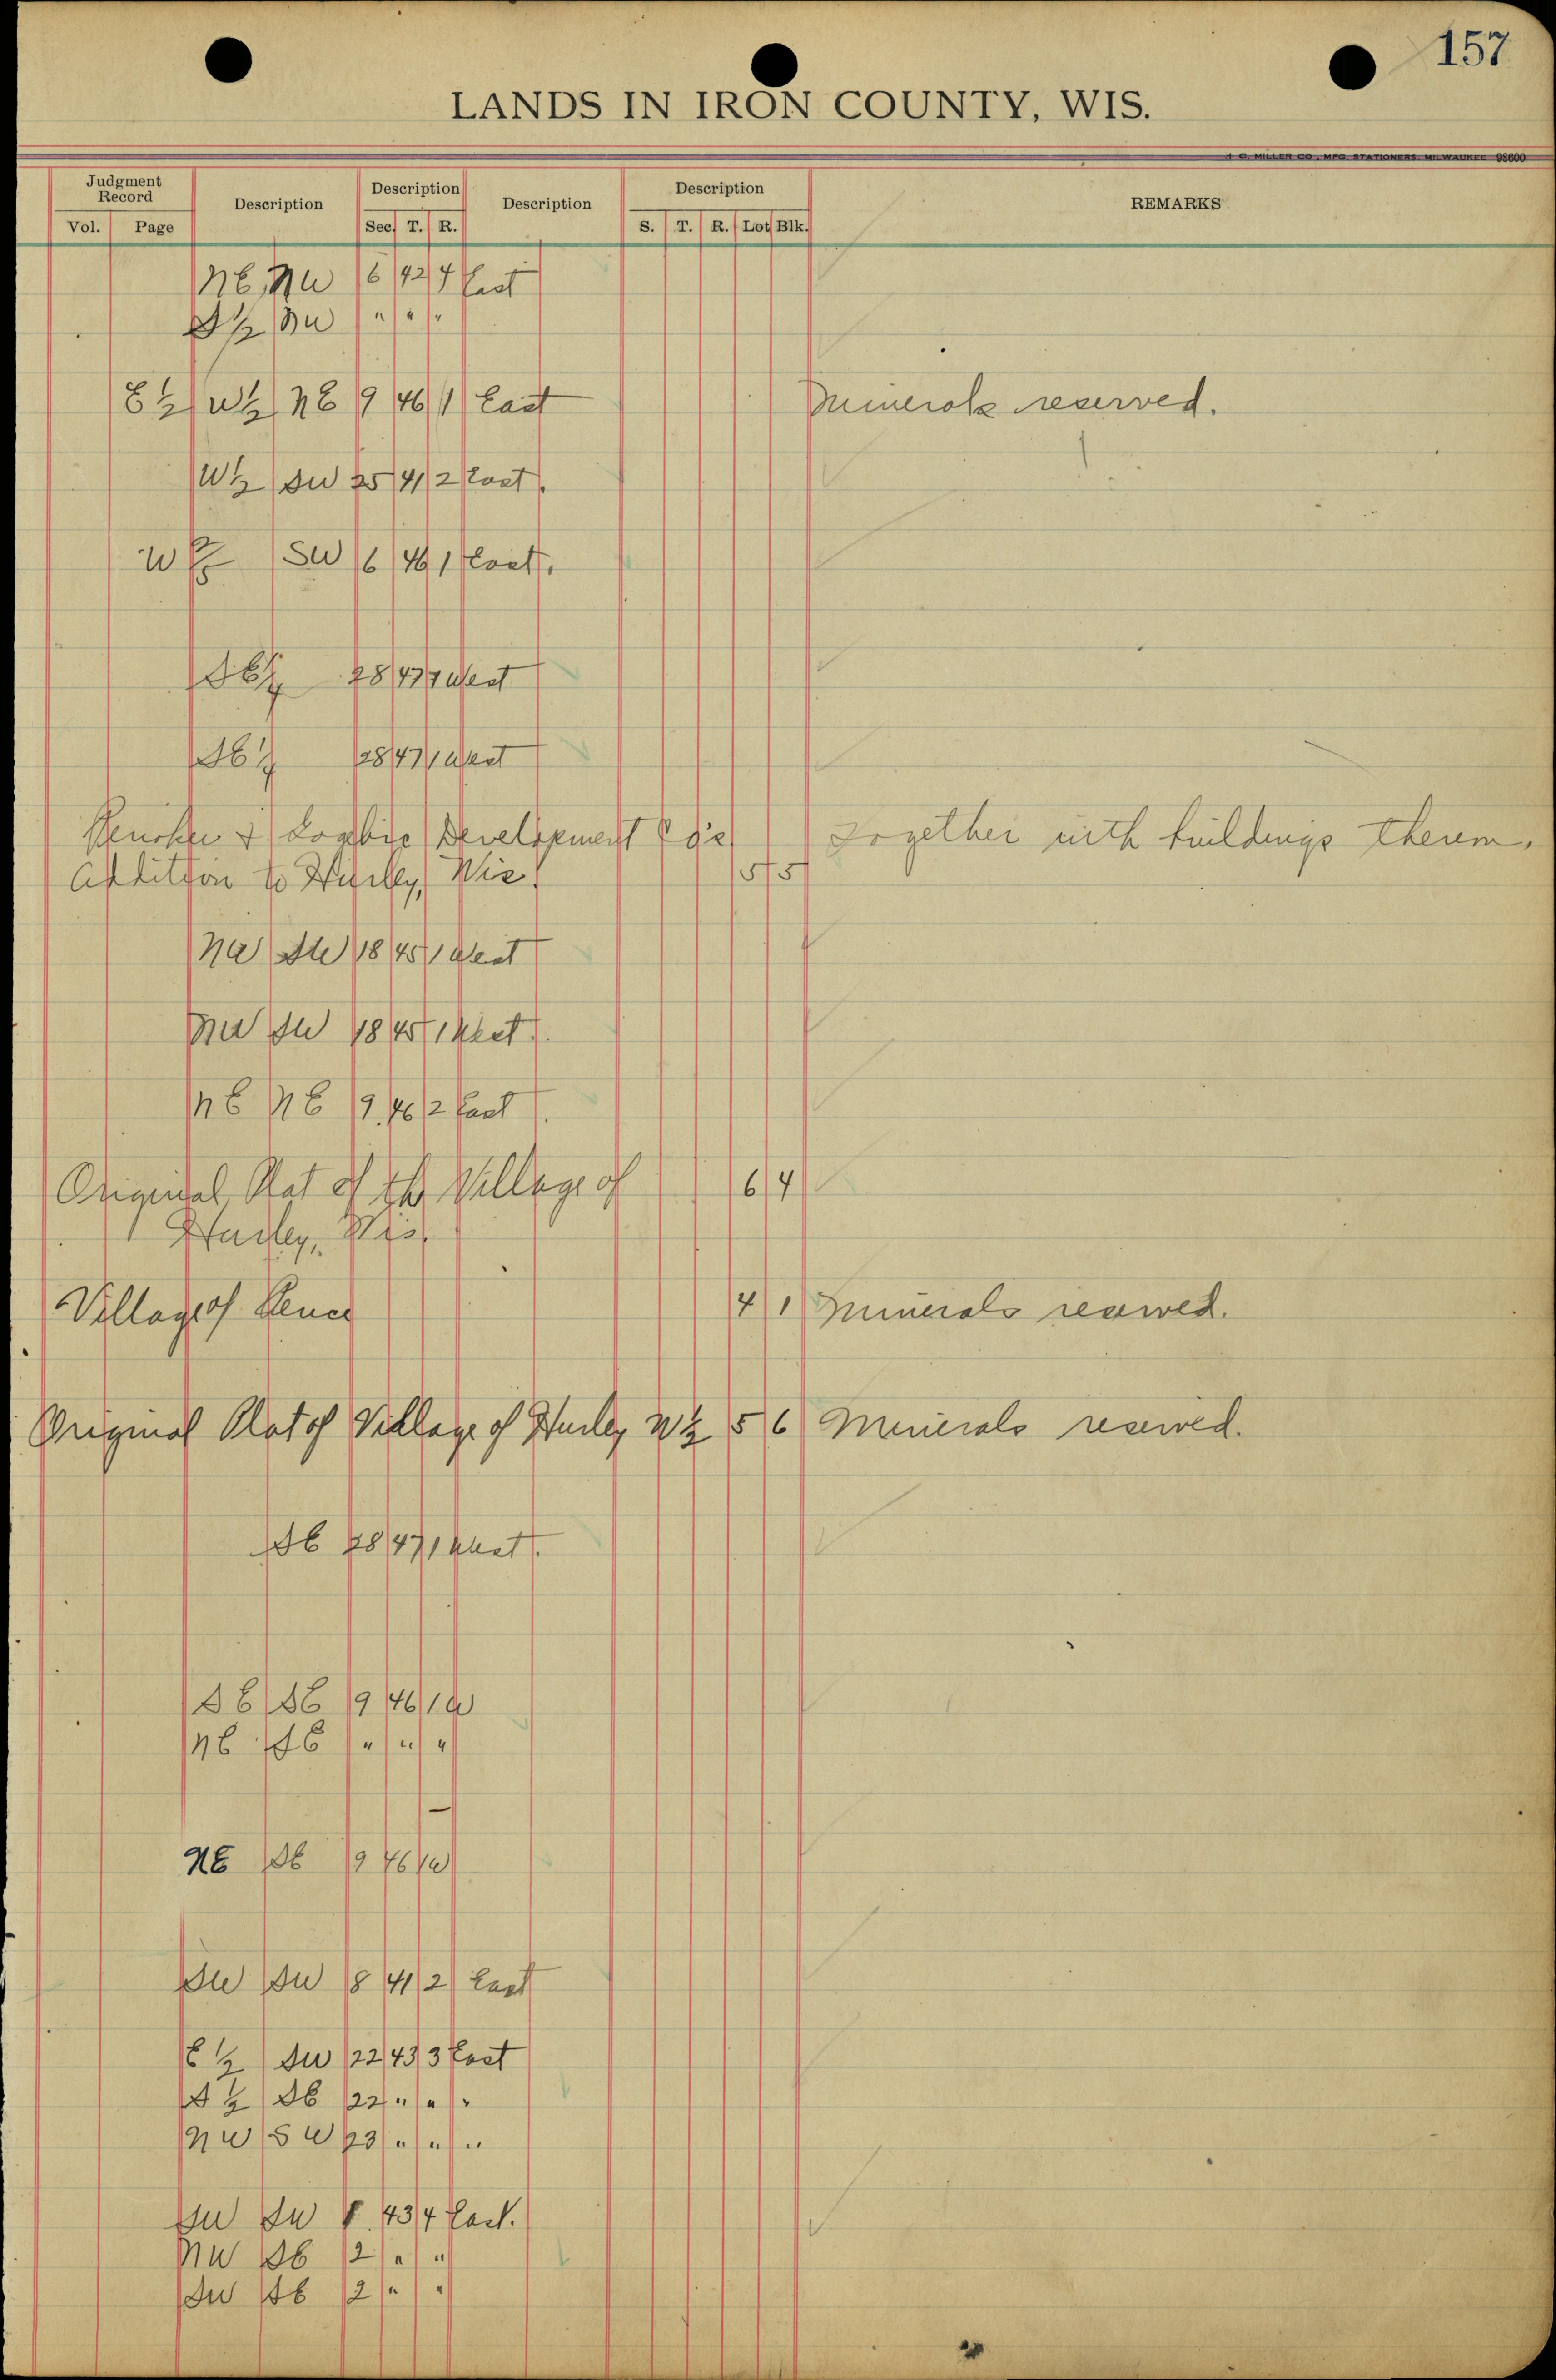 157
LANDS IN IRON COUNTY, WIS.
MILLER CO., MFG. STATIONERS, MILWAUKEE 98600
Judgment Record Description Description Description Description REMARKS
Vol. Page Sec. T. R. S. T. R. Lot Blk.
NE NW 6 42 4 East
S½ NW " " "
E½ W½ NE 9 46 1 East Minerals reserved.
W½ SW 25 41 2 East.
W½ SW 6 46 1 East.
SE¼ 28 47 1 West
SE¼ 28 47 1 West
Development Co's Together with buildings
Addition to Hurley, Wis. 5 5
NW SW 18 45 1 West
NW SW 18 45 1 West.
NE NE 9 46 2 East
Original Plat of the Village of 6 4
Hurley, Wis.
Village of Pence 4 1 Minerals reserved.
Original Plat of Village of Hurley 5 6 Minerals reserved.
SE 28 47 1 West.
SE SE 9 46 1 W
NE SE " " "
NE SE 9 46 1 W
SW SW 8 41 2 East
E½ SW 22 43 3 East
S½ SE 22 " " "
NW SW 23 " " "
SW SW 43 4 East.
NW SE 2 " "
SW SE 2 " "